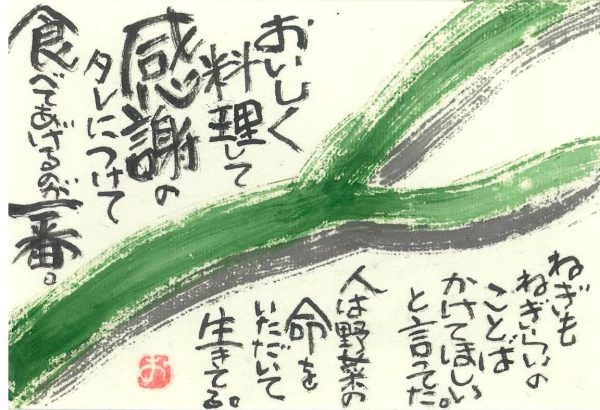 ねぎも
ねぎらいの
ことば
かけてほしい
と言ってた。
人は野菜の
命を
いただいて
生きてる。
おいしく
料理して
感謝の
タレにつけて
食べてあげるのが一番。
お